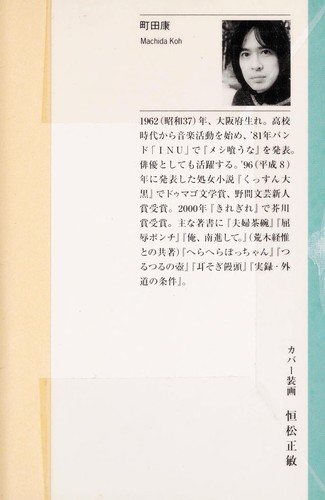 町田康
Machida Koh
1962(昭和37)年、大阪府生れ。高校
時代から音楽活動を始め、'81年バン
ド「INU」で『メシ喰うな』を発表。
俳優としても活躍する。'96(平成8)
年に発表した処女小説『くっすん大
黒』でドゥマゴ文学賞、野間文芸新人
賞受賞。2000年『きれぎれ』で芥川
賞受賞。主な著書に『夫婦茶碗』『屈
辱ポンチ』『俺、南進して。』(荒木経惟
との共著)『へらへらぼっちゃん』『つ
るつるの壺』『耳そぎ饅頭』『実録・外
道の条件』。
カバー装画 恒松正敏